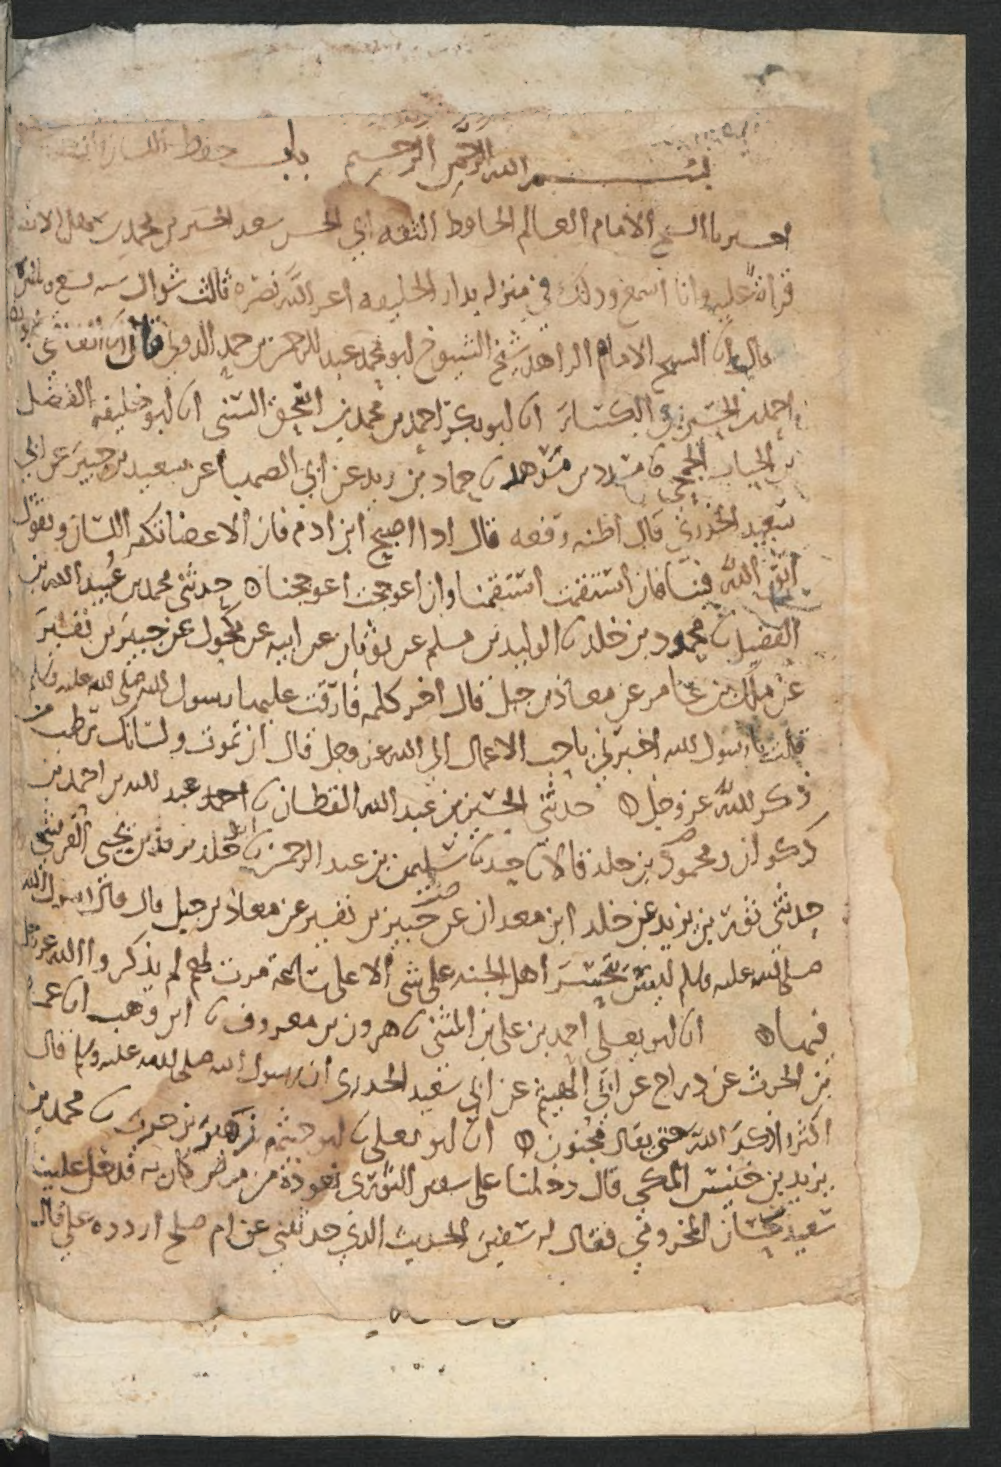 بسم الله الرحمن الرحيم باب حفظ اللسان
اخبرنا الشيخ الامام العالم الحافظ الثقة ابي الحسن سعد الخير بن محمد بن سهل الان
قراة عليه وانا اسمع وذلك في منزله بدار الخليفه اعز الله نصره ثالث شوال سنه تسع وثلثين
قال ان الشيخ الامام الزاهد شيخ الشيوخ ابو محمد عبد الرحمن بن حمد الدوني قال ان القاضي
احمد بن الحسين الكسار ان ابو بكر احمد بن محمد بن اسحق السني ان ابو خليفه الفضل
بن الحباب الجمحي ن مسدد بن مسرهد ن حماد بن زيد عن ابي الصهبا عن سعيد بن جبير عن ابي
سعيد الخدري قال اظنه رفعه قال اذا اصبح ابن ادم فان الاعضا تكفر اللسان وتقول
اتق الله فينا فان استقمت استقمنا وان اعوججت اعوججنا ه حدثني محمد بن عبيد الله بن
الفضيل ن محمود بن خلد ن الوليد بن مسلم عن ثوبان عن ابيه عن مكحول عن جبير بن نفير
عن ملك بن يخامر عن معاذ بن جبل قال اخر كلمه فارقت عليها رسول الله صلى الله عليه وسلم
قلت يا رسول الله اخبرني باحب الاعمال الى الله عز وجل قال ان تموت ولسانك رطب من
ذكر الله عز وجل ه حدثني الحسين بن عبد الله القطان ن احمد عبد الله بن احمد بن
ذكوان ومحمود بن خلد قالا ن سليمن بن عبد الرحمن ن يزيد بن يحيى القرشي
حدثني ثور بن يزيد عن خلد ابن معدان عن جبير بن نفير عن معاذ بن جبل قال قال رسول الله
صلى الله عليه وسلم ليس يتحسر اهل الجنه على شى الا على ساعة مرت بهم لم يذكروا الله عز وجل
فيها ه ان ابو يعلى احمد بن علي بن المثنى ن هرون بن معروف ن ابن وهب ان عمرو
بن الحرث عن دراج عن ابي الهيثم عن ابي سعيد الخدري ان رسول الله صلى الله عليه وسلم قال
اكثروا ذكر الله حتى يقال مجنون ه ان ابو يعلى ن ابو خيثمه زهير بن حرب ن محمد بن
يزيد بن خنيس المكي قال دخلنا على سفين الثوري نعوده من مرض كان به فدخل علينا
سعيد بن حسان المخزومي فقال له سفين الحديث الذي حدثتني عن ام صلح اردده علي قال